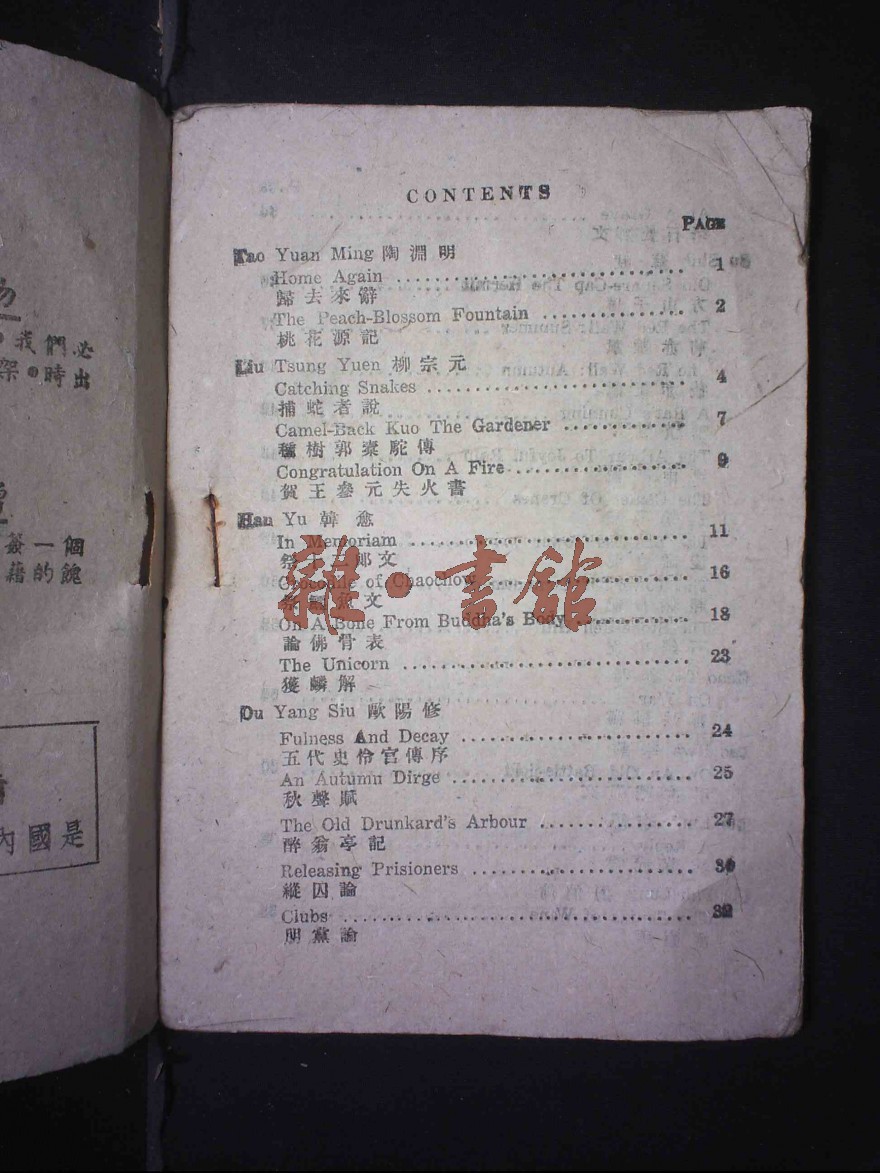 勿
我們必
架。時出
簽一個
藉的餽
內國是
CONTENTS
PAGE
Tao Yuan Ming 陶淵明
Home Again 1
歸去來辭
The Peach-Blossom Fountain 2
桃花源記
Liu Tsung Yuen 柳宗元
Catching Snakes 4
捕蛇者說
Camel-Back Kuo The Gardener 7
種樹郭橐駝傳
Congratulation On A Fire 9
賀王參元失火書
Han Yu 韓愈
In Memoriam 11
祭十二郎文
Crocodile of Chaochow 16
祭鱷魚文
On A Bone From Buddha's Body 18
論佛骨表
The Unicorn 23
獲麟解
Ou Yang Siu 歐陽修
Fulness And Decay 24
五代史伶官傳序
An Autumn Dirge 25
秋聲賦
The Old Drunkard's Arbour 27
醉翁亭記
Releasing Prisioners 30
縱囚論
Clubs 32
朋黨論
雜·書館